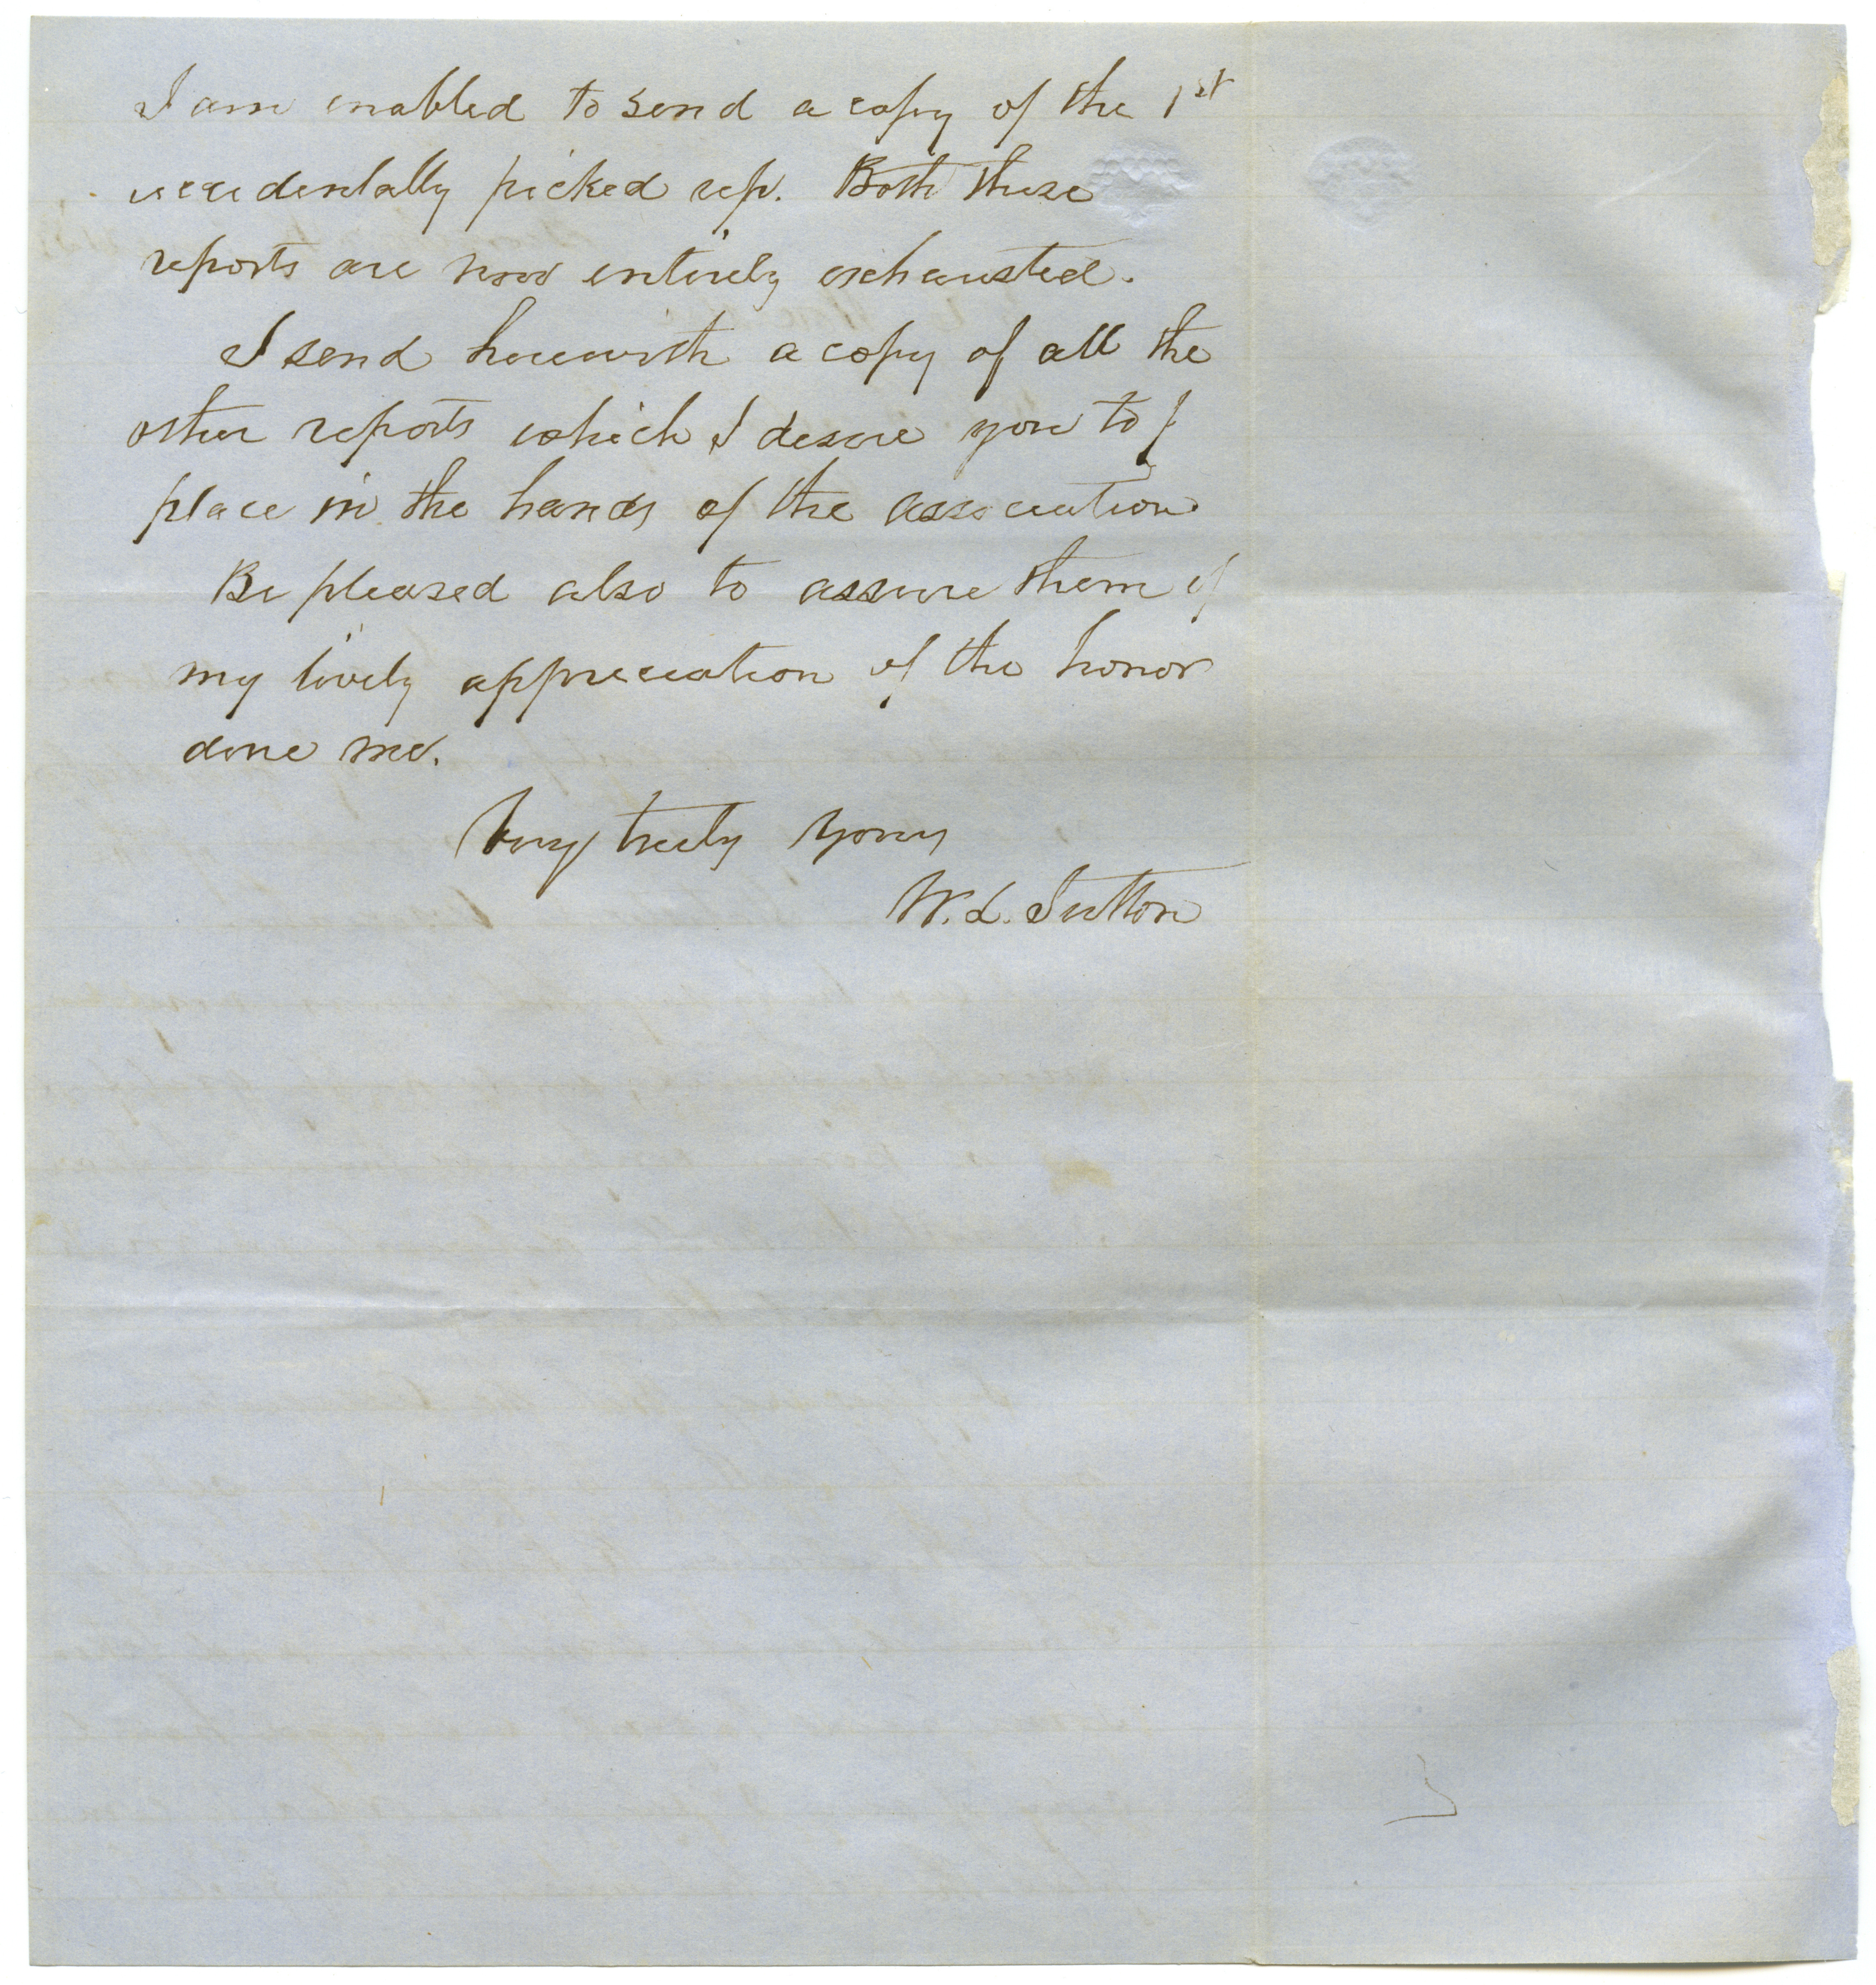 I am enabled to send a copy of the 1st
accidentally picked up. Both these
reports are now entirely exhausted.
I send herewith a copy of all the
other reports which I desire you to
place in the hands of the association
Be pleased also to assure them of
my lively appreciation of the honor
done me.
Very truly yours
W. L. Sutton